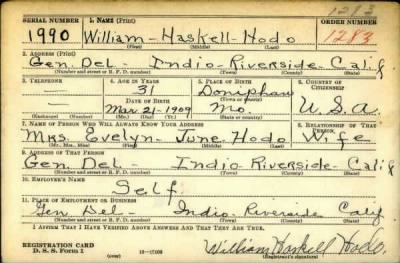 1283
SERIAL NUMBER 1. NAME (Print) ORDER NUMBER
1990 William - Haskell - Hodo 1283
(First) (Middle) (Last)
2. ADDRESS (Print)
Gen. Del - Indio - Riverside - Calif
(Number and street or R. F. D. number) (Town) (County) (State)
3. TELEPHONE 4. AGE IN YEARS 5. PLACE OF BIRTH 6. COUNTRY OF CITIZENSHIP
— 31 Doniphan
DATE OF BIRTH (Town or county)
— Mar - 21 - 1909 Mo. U.S.A.
(Exchange) (Number) (Mo.) (Day) (Yr.) (State or country)
7. NAME OF PERSON WHO WILL ALWAYS KNOW YOUR ADDRESS 8. RELATIONSHIP OF THAT PERSON
Mrs. Evelyn - June - Hodo Wife
(Mr., Mrs., Miss) (First) (Middle) (Last)
9. ADDRESS OF THAT PERSON
Gen. Del - Indio - Riverside - Calif
(Number and street or R. F. D. number) (Town) (County) (State)
10. EMPLOYER'S NAME
Self
11. PLACE OF EMPLOYMENT OR BUSINESS
Gen Del - Indio Riverside Calif
(Number and street or R. F. D. number) (Town) (County) (State)
I AFFIRM THAT I HAVE VERIFIED ABOVE ANSWERS AND THAT THEY ARE TRUE.
REGISTRATION CARD
D. S. S. Form 1 William Haskell Hodo
(Registrant's signature)